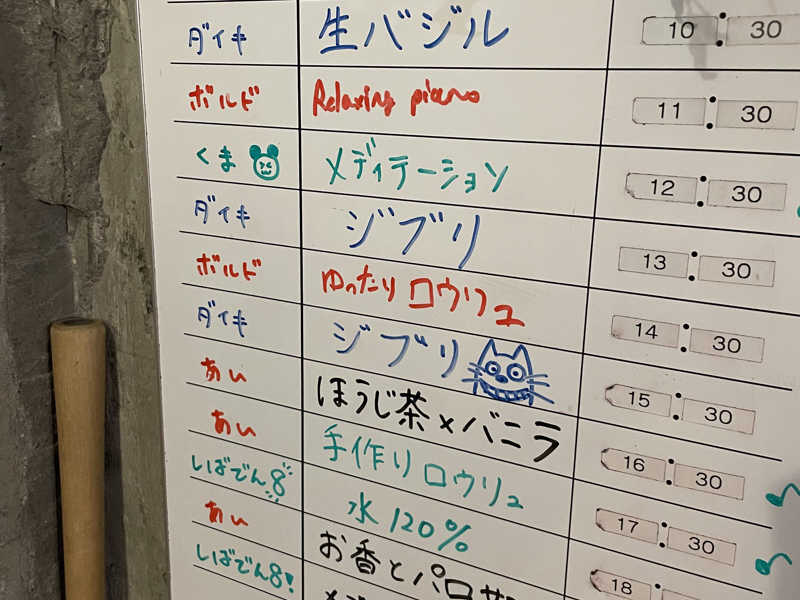 ダイキ 生バジル 10:30
ボルド Relaxing piano 11:30
くま メディテーション 12:30
ダイキ ジブリ 13:30
ボルド ゆったりロウリュ 14:30
ダイキ ジブリ 15:30
あい ほうじ茶×バニラ 16:30
あい 手作りロウリュ 17:30
しばでん8 水120% 18:
あい お香とパロサ
しばでん8!